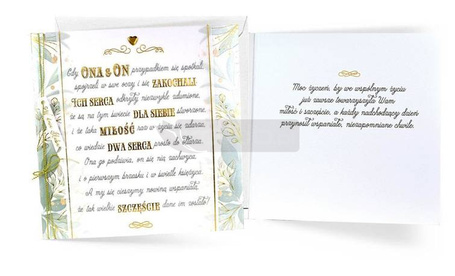 Gdy ONA & ON przypadkiem się spotkali,
spojrzeli w swe oczy i się ZAKOCHALI.
ICH SERCA odkryły niezwykle zdumione,
że są na tym świecie DLA SIEBIE stworzone,
i że taka MIŁOŚĆ raz w życiu się zdarza,
co wiedzie DWA SERCA prosto do ołtarza.
Ona go podziwia, on się nią zachwyca,
i o pierwszym brzasku i w świetle księżyca.
A my się cieszymy nowiną wspaniałą,
że tak wielkie SZCZĘŚCIE dane im zostało!
Moc życzeń, by we wspólnym życiu
już zawsze towarzyszyła Wam
miłość i szczęście, a każdy nadchodzący dzień
przynosił wspaniałe, niezapomniane chwile.